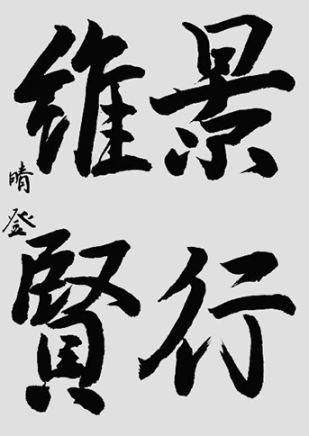 景行
維賢
晴登